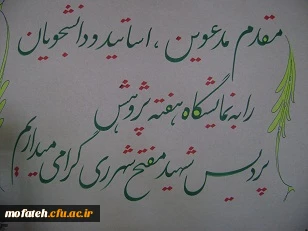 مقدم مدعوین، اساتید و دانشجویان
را به نمایشگاه هفته پژوهش
پردیس شهید مفتح شهرری گرامی میداریم
mofateh.cfu.ac.ir